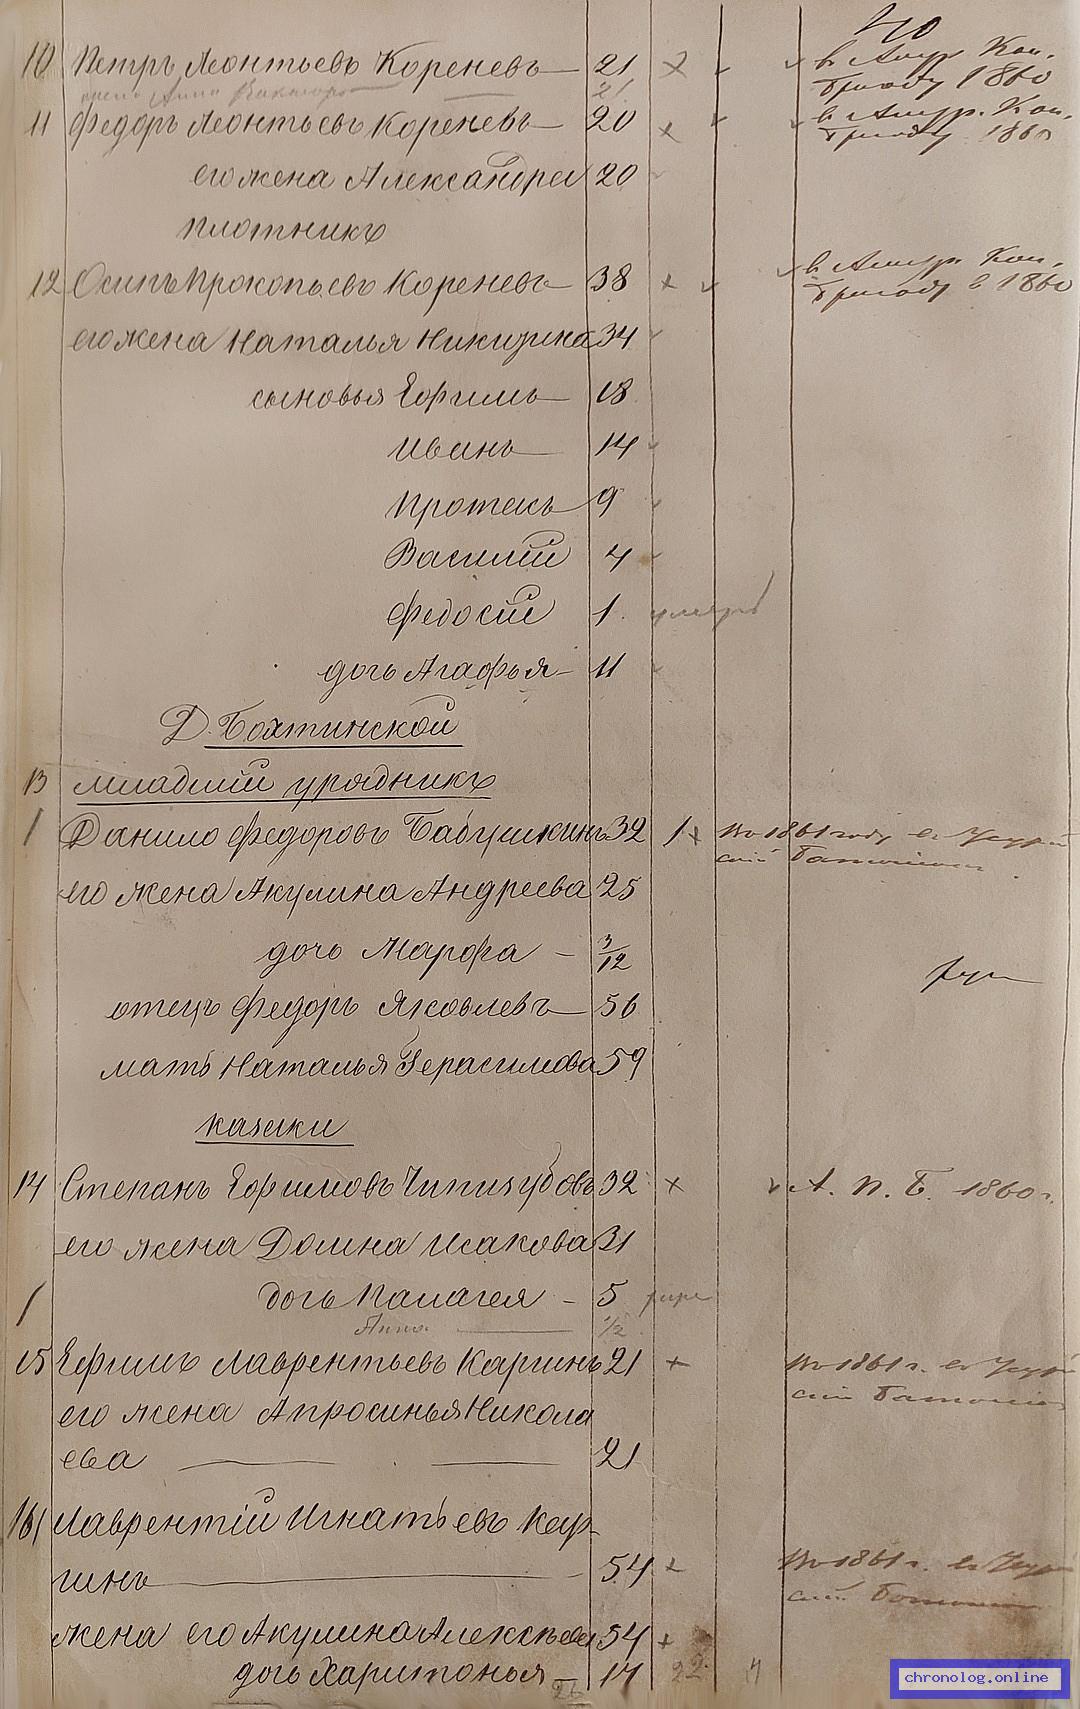 10 Петръ Леонтьевъ Кореневъ 21 в Амур. Кон.
Бригаду 1860
Анна 21
11 Федоръ Леонтьевъ Кореневъ 20 в Амур. Кон.
Бригаду 1860
его жена Александра 20
плотникъ
12 Осипъ Прокопьевъ Кореневъ 38 в Амур. Кон.
Бригаду в 1860
его жена Наталья Никизина 34
сыновья Ефимъ 18
Иванъ 14
Протекъ 9
Василій 4
Федосій 1 умеръ
дочь Агафья 11
Д. Бохтинской
13 младшій урядникъ
1 Данило Федоровъ Бабушкинъ 32 1 Въ 1861 году въ Уссурій
скій Баталіонъ
его жена Акулина Андреева 25
дочь Марфа 3/12
отецъ Федоръ Яковлевъ 56
мать Наталья Герасимова 59
казаки
14 Степанъ Ефимовъ Чипизубовъ 32 А. П. Б. 1860 г.
его жена Домна Исакова 31
дочь Палагея 5
Анна 1/2
15 Ефимъ Лаврентьевъ Каргинъ 21 Въ 1861 г. въ Уссурій
скій Баталіонъ
его жена Апросинья Никола
ева 21
16 Лаврентій Игнатьевъ Кар-
гинъ 54 Въ 1861 г. въ Уссурій
скій Баталіонъ
жена его Акулина Алексѣева 54
дочь Харитонья 17 22
26
chronolog.online